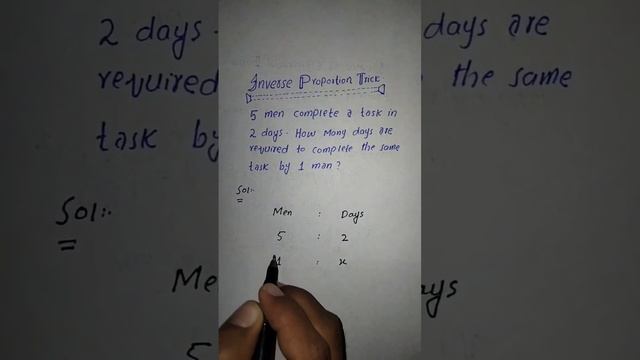 Inverse Proportion Trick
5 men complete a task in
2 days. How many days are
required to complete the same
task by 1 man?
Sol:-
Men : Days
5 : 2
1 : x